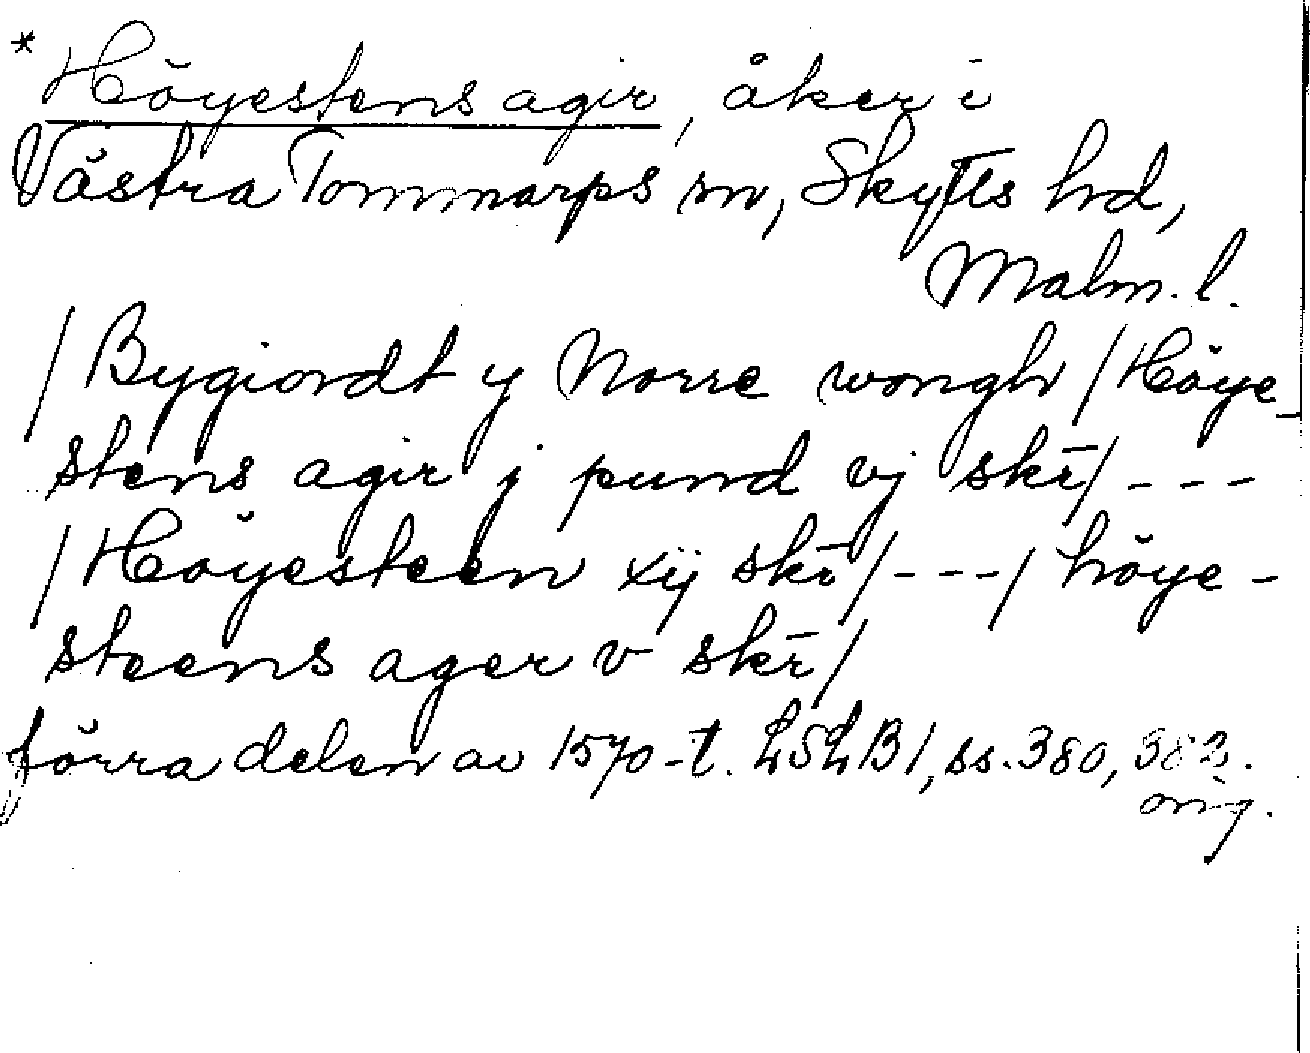 * Höyestens agir, åker i
Västra Tommarps sn, Skytts hd,
Malm. l.
/ Bygiordt y Norre wongh / Höye-
stens agir j pund vj skr̄ / ---
/ Höyesteen xij skr̄ / --- / höye-
steens ager v skr̄ /
förra delen av 1570-t. LSLB1, ss. 380, 382.
orig.